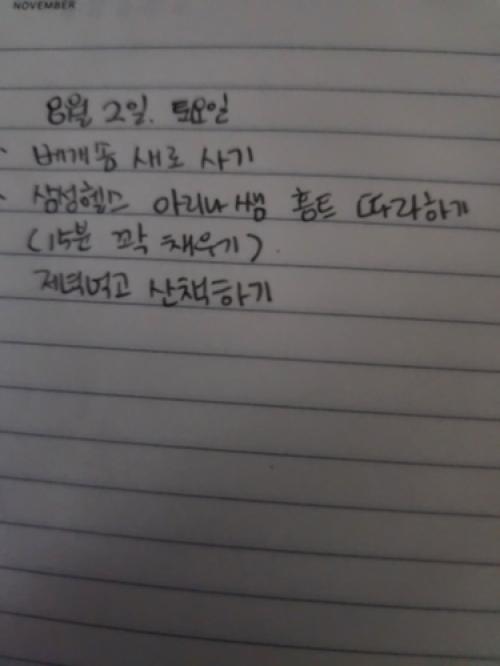 NOVEMBER
8월 2일. 토요일
베개솜 새로 사기
삼성헬스 아리나쌤 홈트 따라하기
(15분 꽉 채우기).
저녁먹고 산책하기